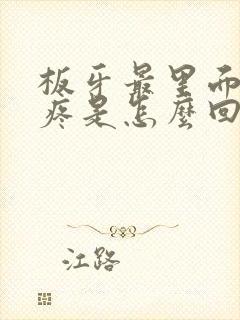 板牙最里而
疼是怎麼回
江路